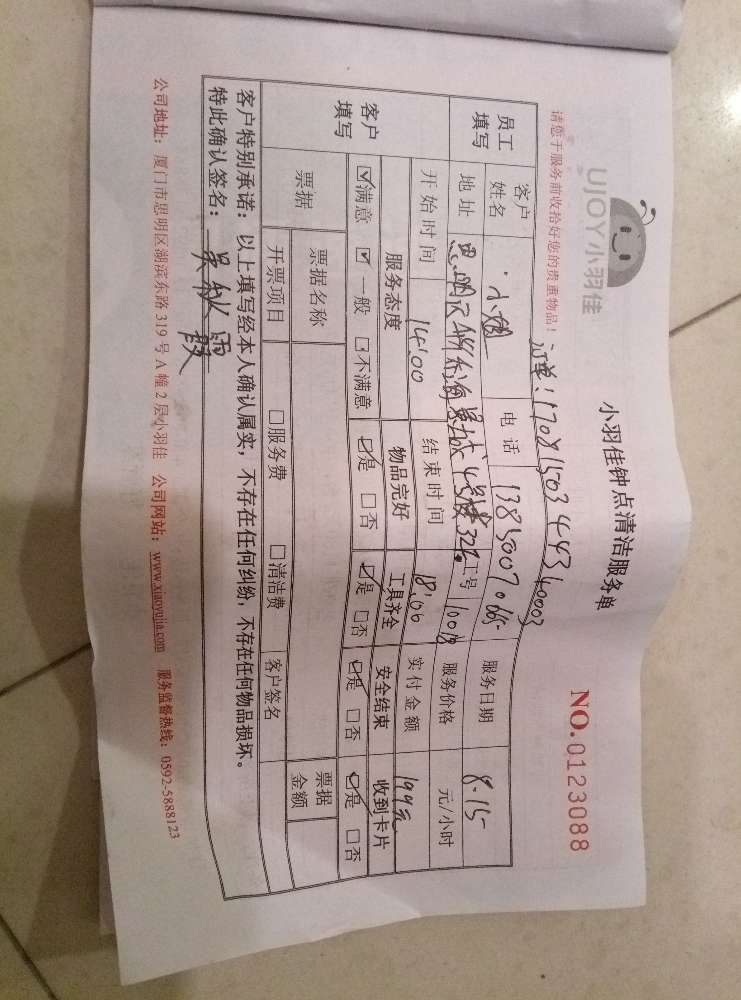 UJOY小羽佳
小羽佳钟点清洁服务单
NO.0123088
请您于服务前收拾好您的贵重物品！
员工填写
客户姓名
电话
服务日期 8.15
地址
工号
服务价格 元/小时
开始时间 14:00
结束时间 18:00
实付金额 199元
客户填写
服务态度 物品完好 工具齐全 安全结束 收到卡片
☑满意 ☑一般 □不满意 ☑是 □否 ☑是 □否 ☑是 □否 ☑是 □否
票据
票据名称
票据金额
开票项目 □服务费 □清洁费 客户签名
客户特别承诺：以上填写经本人确认属实，不存在任何纠纷，不存在任何物品损坏。
特此确认签名：
公司地址：厦门市思明区湖滨东路319号A幢2层小羽佳 公司网站：www.xiaoyujia.com 服务监督热线：0592-5888123